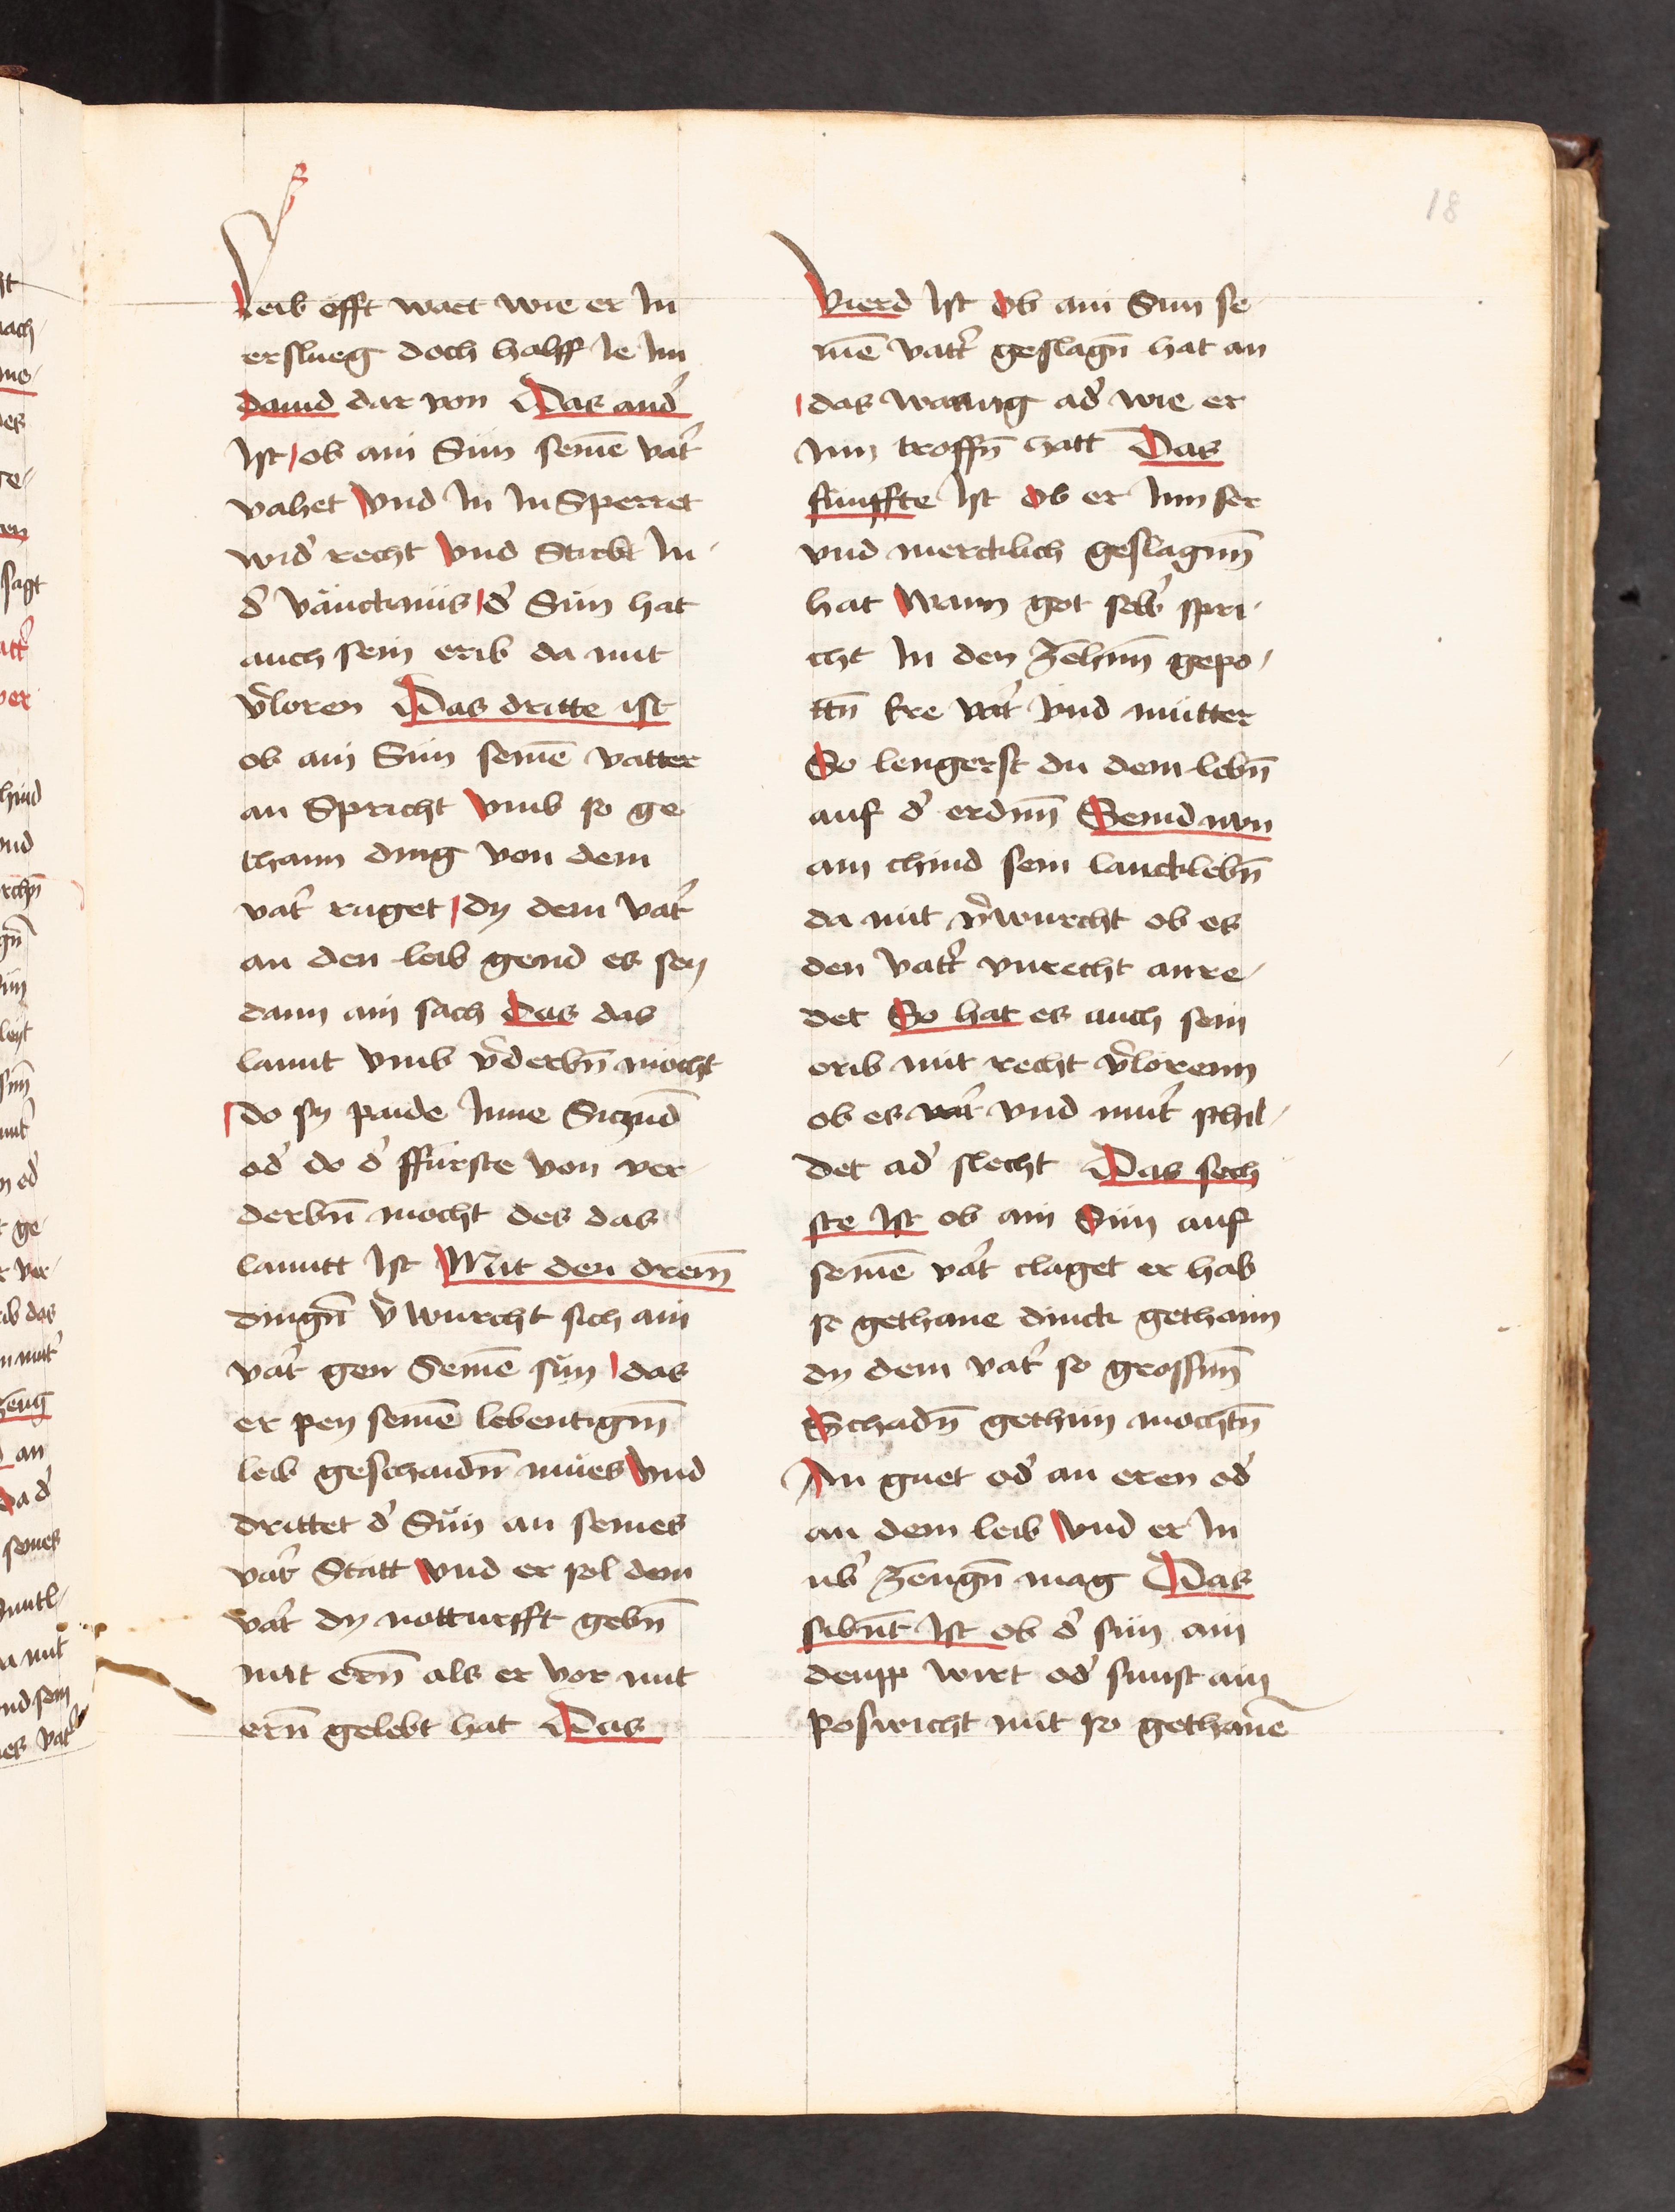 18
leib offt wart wie er In
erslueg doch halff Ie Im
dauid dar von Das and͛
Ist ob ain Sun seinē vat͛
vahet vnd In In Sperret
wid͛ recht vnd Stirbt In
d͛ väncknüs d͛ Sün hat
auch sein erib da mit
v͛loren Das dritte ist
ob ain Sün seinē vatter
an Spricht vmb so ge
thann ding von dem
vat͛ ruget dy dem vat͛
an den leib gend es sey
dann ain sach Das das
lannt vmb v͛derbn̄ möcht
do sy paide Inne Sicznd̄
od͛ do d͛ ffürste von ver
derbn̄ mocht des das
lanntt Ist Mit den dreīn
dingn̄ v͛wurcht sich ain
vat͛ gen Seinē sün das
er pey seinē lebentigm̄
leib geschaidn̄ mües vnd
drittet d͛ Sün an seines
vat͛ Statt vnd er sol dem
vat͛ dy notturfft gebn̄
mit ern̄ als er vor mit
ern̄ gelebt hat Das
vierd Ist Ob ain Sun se
inē vatt͛ geslagn̄ hat an
das wanng ad͛ wie er
Inn troffn̄ hatt Das
fünffte Ist Ob er Inn ser
vnd mercklich geslagnn̄
hat Wann got selb͛ spri
cht In den Zehnn̄ gepo
ttn̄ Ere vat͛ vnd mütter
So lengerst du dem lebn̄
auf d͛ erdnn̄ Seind nvn
ain chind sein lancklebn̄
da mit v͛wurcht ob es
den vatt͛ vnrecht anre
det So hat es auch sein
erib mit recht v͛lorenn
ob es vat͛ vnd mut͛ schil
det ad͛ slecht Das sech
ste Ist ob ain Sün auf
seinē vat͛ claget er hab
so gethane dinck gethann
dy dem vat͛ so grossnn̄
Schadn̄ gethun mochtn̄
An guet od͛ an eren od͛
an dem leib vnd er In
ub͛ Zeugn̄ mag Das
sibnt̄ Ist ob d͛ sün ain
deupp wirt od͛ sunst ain
poswicht mit so gethanē